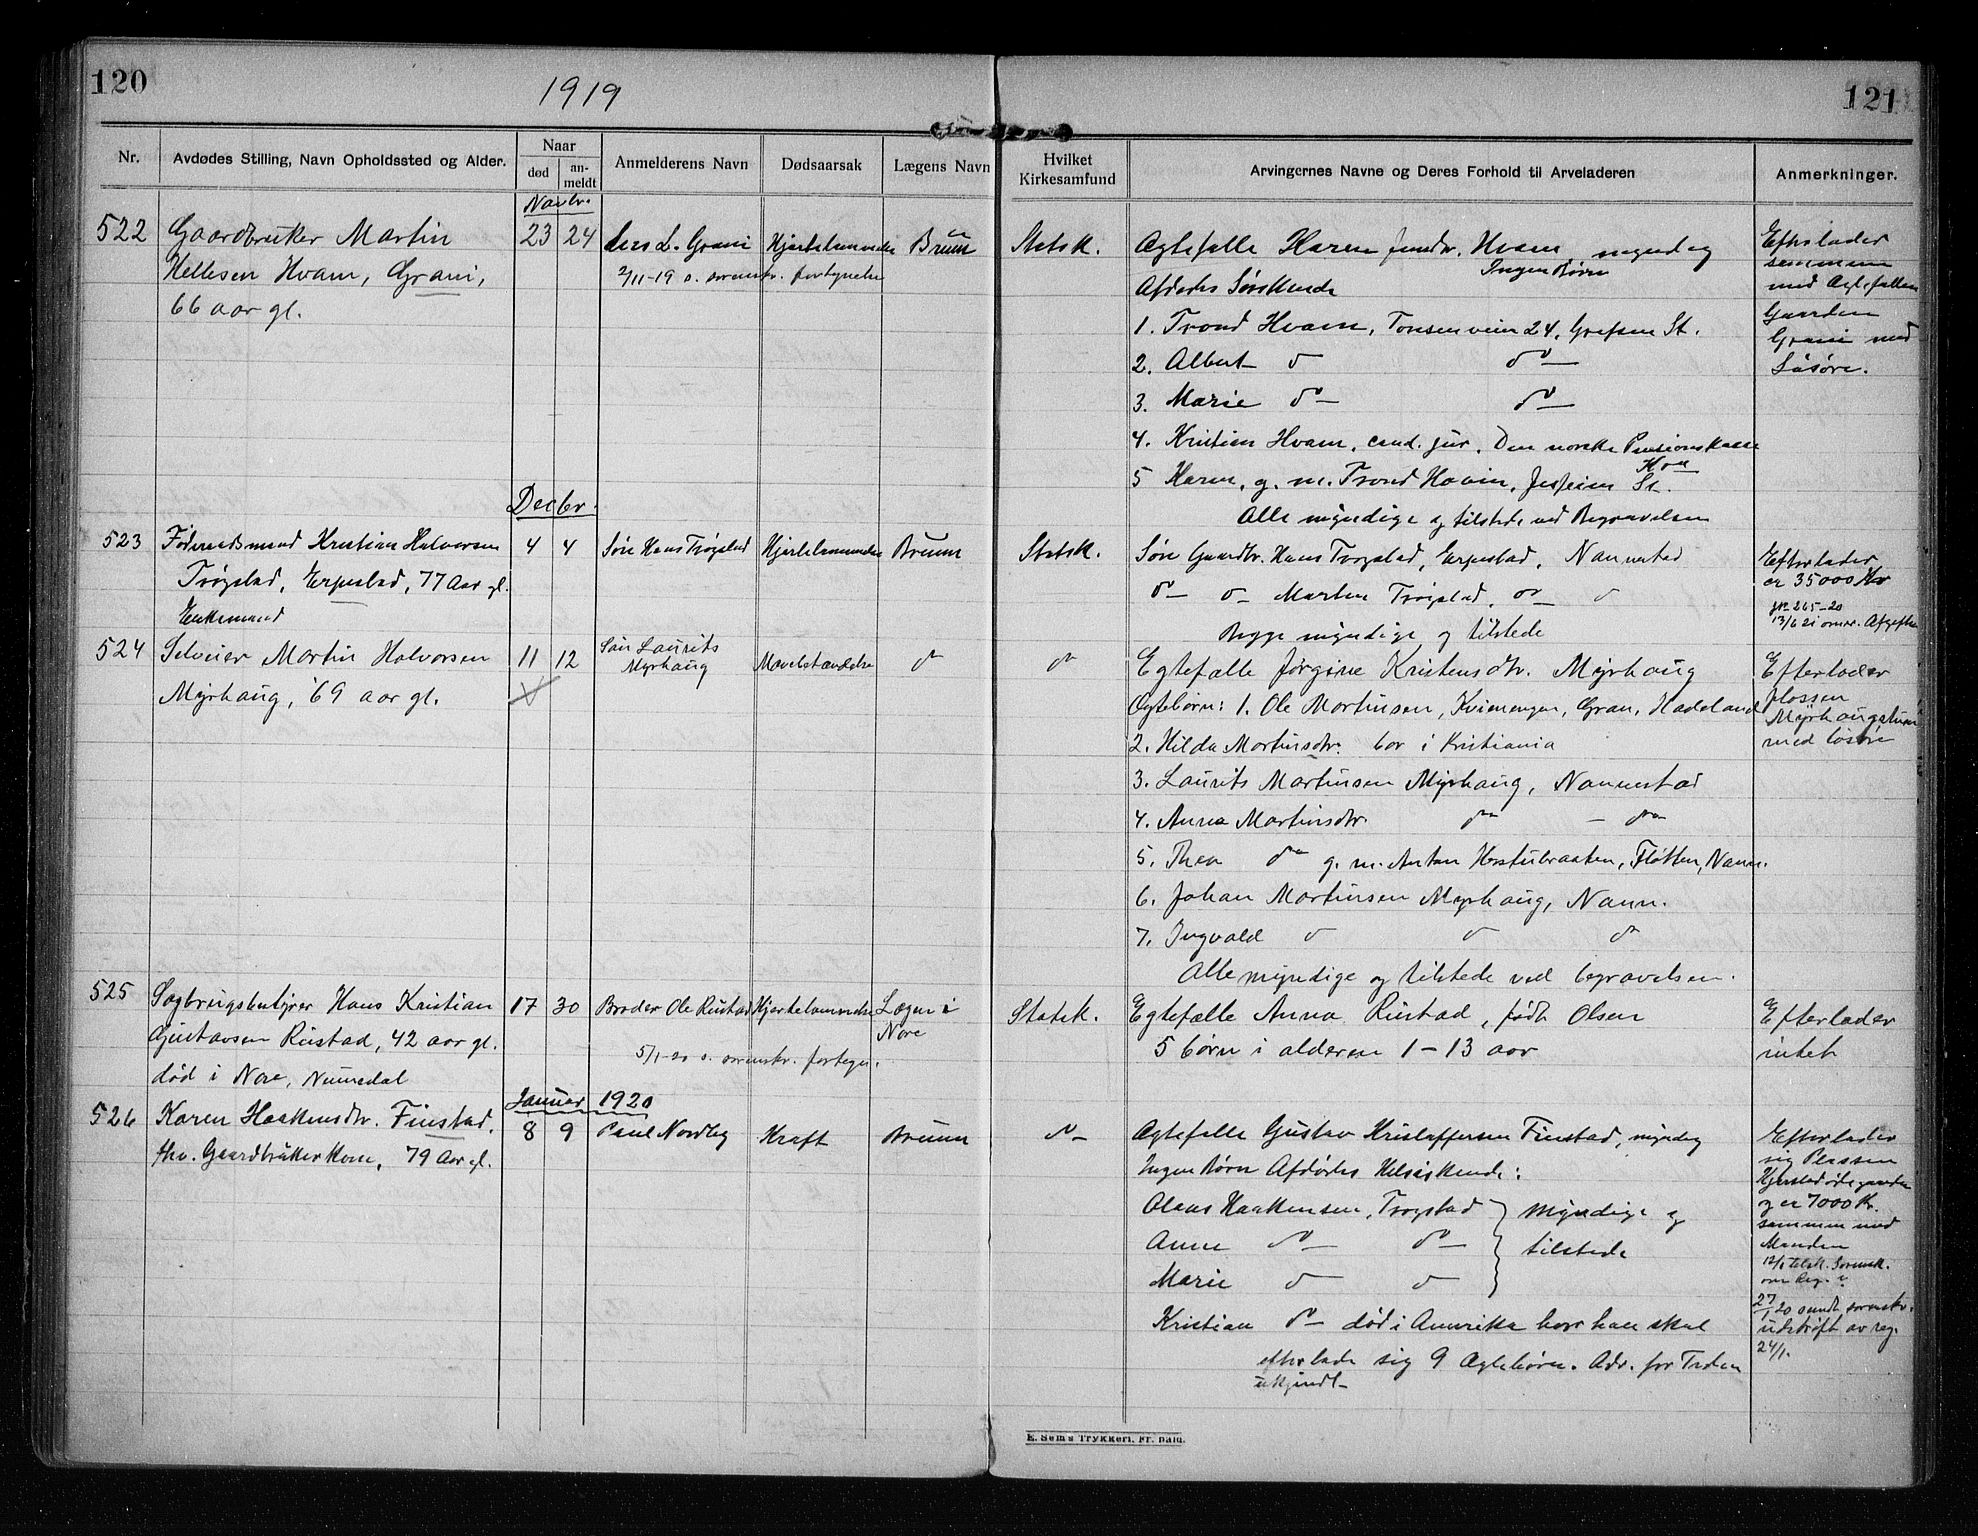 120
1919
121
Nr.
Avdødes Stilling, Navn Opholdssted og Alder.
Naar
død
an-
meldt
Anmelderens Navn
Dødsaarsak
Lægens Navn
Hvilket
Kirkesamfund
Arvingernes Navne og Deres Forhold til Arveladeren
Anmerkninger.
Novbr.
522
Gaardbruker Martin
Hellesen Hvam, Grani,
66 aar gl.
23
24
L. Grani
Hjertelammelse
Bruun
2/11-19 s. sorenskr. fortegnelse
Statsk.
Ægtefælle Karen fundr. Hvam, myndig
Ingen Børn
Afdødes Søskende
1. Trond Hvam, Tonsenveien 24, Grefsen St.
2. Albert do do
3. Marie do do
4. Kristian Hvam, cand. jur. Den norske Pensionskasse
Kra
5 Karen, g. m. Trond Hovin, Jesheim St.
Alle myndige og tilstede ved Begravelsen
Efterlader
sammen
med Ægtefællen
Gaarden
Grani med
Løsøre.
Decbr.
523
Føderaadsmand Kristian Halvorsen
Trøgstad, Erpestad, 77 Aar gl.
Enkemand
4
4
Søn Hans Trøgstad
Hjertelammelse
Bruun
Statsk.
Søn Gaardbr. Hans Trøgstad, Erpestad, Nannestad
do do Martin Trøgstad, do do
Begge myndige og tilstede
Efterlader
ca 35000 Kr
524
Selveier Martin Halvorsen
Myrhaug, 69 aar gl.
11
12
Søn Laurits
Myrhaug
Mavebetændelse
do
do
Egtefælle Jørgine Kristensdtr. Myrhaug
Ægtebørn: 1. Ole Martinsen, Kvimengen, Gran, Hadeland
2. Hilda Martinsdtr. bor i Kristiania
3. Laurits Martinsen Myrhaug, Nannestad
4. Anna Martinsdtr. do - do
5. Thea do g. m. Anton Hostubraaten, Fløtten, Nann.
6. Johan Martinsen Myrhaug, Nann.
7. Ingvald do do do
Alle myndige og tilstede ved begravelsen.
Efterlader
plassen
Myrhaugstuen
med løsøre
525
Sagbrugsbetjener Hans Kristian
Gustavsen Rustad, 42 aar gl.
død i Nore, Numedal
17
30
Broder Ole Rustad
Hjertelammelse
Lægen i
Nore
5/1-20 s. sorenskr. fortegn.
Statsk.
Egtefælle Anna Rustad, født Olsen
5 børn i alderen 1 - 13 aar
Efterlader
intet
Januar 1920
526
Karen Haakensdtr. Finstad,
fhv. Gaardbrukerkone, 79 Aar gl.
8
9
Paul Nordby
Kræft
Bruun
do
Ægtefælle Gustav Kristoffersen Finstad, myndig
Ingen Børn Afdødes Helsøskende:
Olaus Haakensen, Trøgstad
Anne do do
Marie do do
myndige og
tilstede
Kristian do død i Amerika hvor han skal
efterlade sig 9 Ægtebørn. Adr. for Tiden
ukjendt
Efterlader
sig Plassen
og ca 7000 Kr.
sammen med
Manden
27/1 20 sendt sorenskr.
utskrift av reg.
24/1.
E. Sem's Trykkeri, Fr. hald.